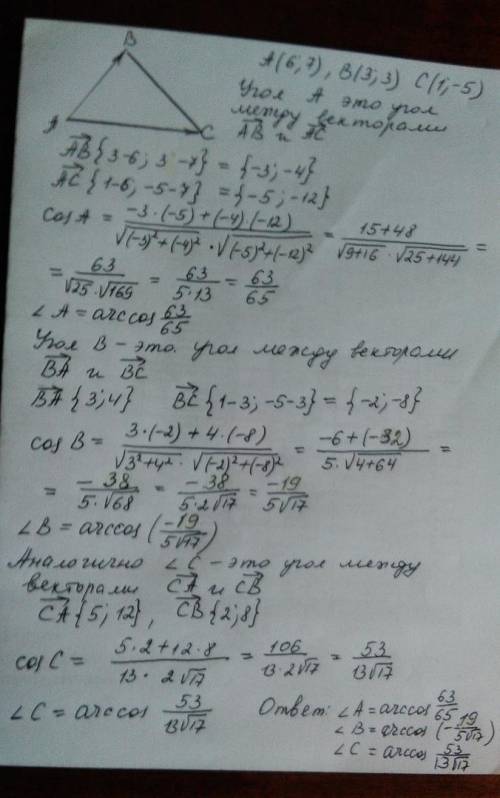 B
A(6;7), B(3;3) C(1;-5)
Угол A это угол
между векторами
A
C
AB и AC
AB {3-6; 3-7} = {-3; -4}
AC {1-6; -5-7} = {-5; -12}
cos A = (-3·(-5)+(-4)·(-12))/(√((-3)²+(-4)²)·√((-5)²+(-12)²)) = (15+48)/(√(9+16)·√(25+144)) =
= 63/(√25·√169) = 63/(5·13) = 63/65
∠A = arccos 63/65
Угол B - это угол между векторами
BA и BC
BA {3;4} BC {1-3; -5-3} = {-2; -8}
cos B = (3·(-2)+4·(-8))/(√(3²+4²)·√((-2)²+(-8)²)) = (-6+(-32))/(5·√(4+64)) =
= -38/(5·√68) = -38/(5·2√17) = -19/(5√17)
∠B = arccos (-19/(5√17))
Аналогично ∠C - это угол между
векторами CA и CB
CA {5; 12}, CB {2; 8}
cos C = (5·2+12·8)/(13·2√17) = 106/(13·2√17) = 53/(13√17)
∠C = arccos 53/(13√17) Ответ: ∠A = arccos 63/65
∠B = arccos (-19/(5√17))
∠C = arccos 53/(13√17)